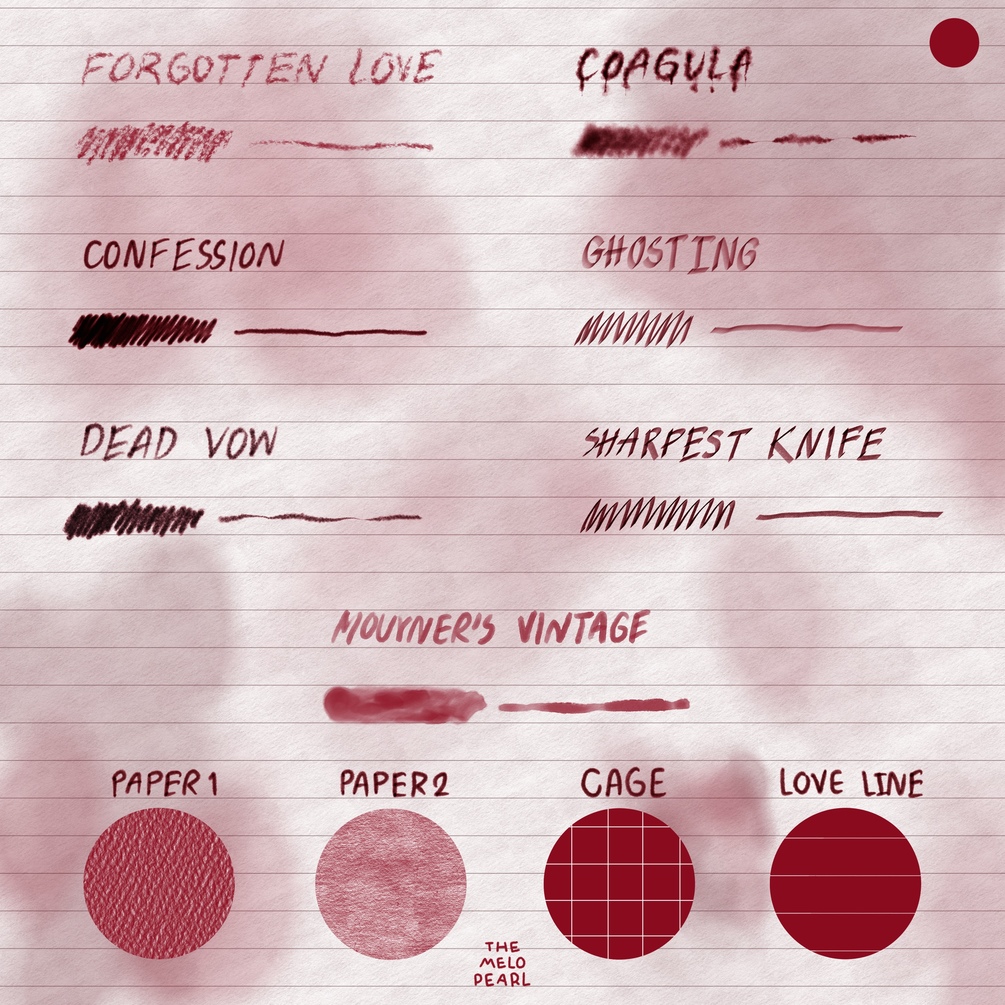 FORGOTTEN LOVE
COAGULA
CONFESSION
GHOSTING
DEAD VOW
SHARPEST KNIFE
MOURNER'S VINTAGE
PAPER 1
PAPER 2
CAGE
LOVE LINE
THE
MELO
PEARL